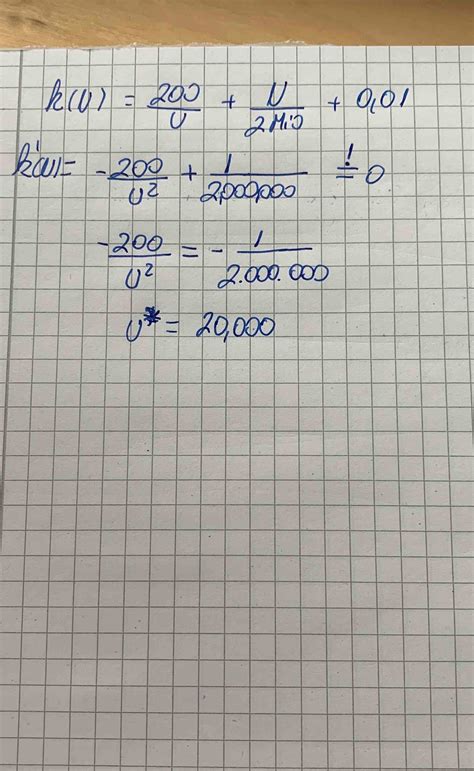 k(U) = 200/U + U/2 Mio + 0,01
k'(U) = -200/U² + 1/2,000,000 =! 0
-200/U² = -1/2.000.000
U* = 20,000